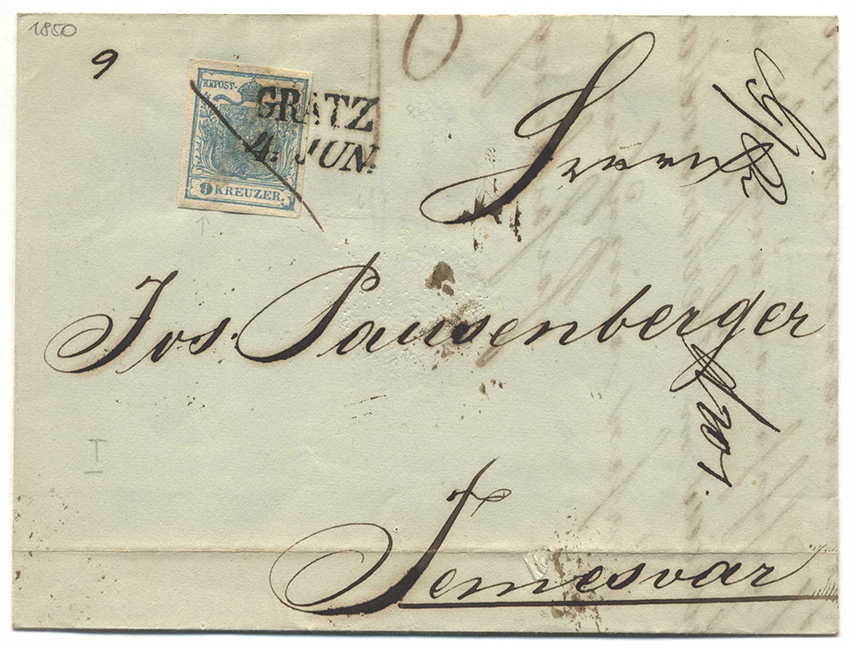 1850
9
KKPOST-
9 KREUZER.
GRATZ
4. JUN.
Herrn
Jos. Pausenberger
I
Temesvar